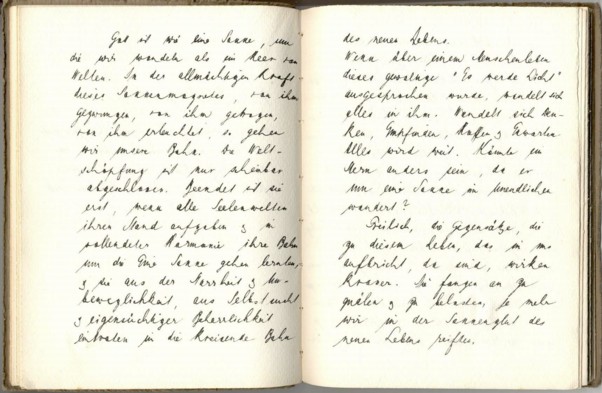 Gott ist wie eine Sonne, um
die wir wandeln als ein Meer von
Welten. In der allmächtigen Kraft
dieses Sonnenmagnetes, von ihm
gezwungen, von ihm getragen,
von ihm erleuchtet, so gehen
wir unsere Bahn. Die Welt-
schöpfung ist nur scheinbar
abgeschlossen. Beendet ist sie
erst, wenn alle Seelenwelten
ihren Stand aufgeben & in
vollendeter Harmonie ihre Bahn
um die Eine Sonne gehen lernten,
& sie aus der Starrheit & Un-
beweglichkeit, aus Selbstsucht
& eigensüchtiger Beharrlichkeit
eintraten in die kreisende Bahn
des neuen Lebens.
Wenn über einem Menschenleben
dieses gewaltige "Es werde Licht"
ausgesprochen wurde, wandelt sich
alles in ihm. Wandelt sich Den-
ken, Empfinden, Hoffen & Erwarten
Alles wird weit. Könnte ein
Stern anders sein, da er
um eine Sonne im Unendlichen
wandert?
Freilich, die Gegensätze, die
zu diesem Leben, das in uns
aufbricht, da sind, wirken
krasser. Sie fangen an zu
quälen & zu belasten, je mehr
wir in der Sonnenglut des
neuen Lebens reiften.